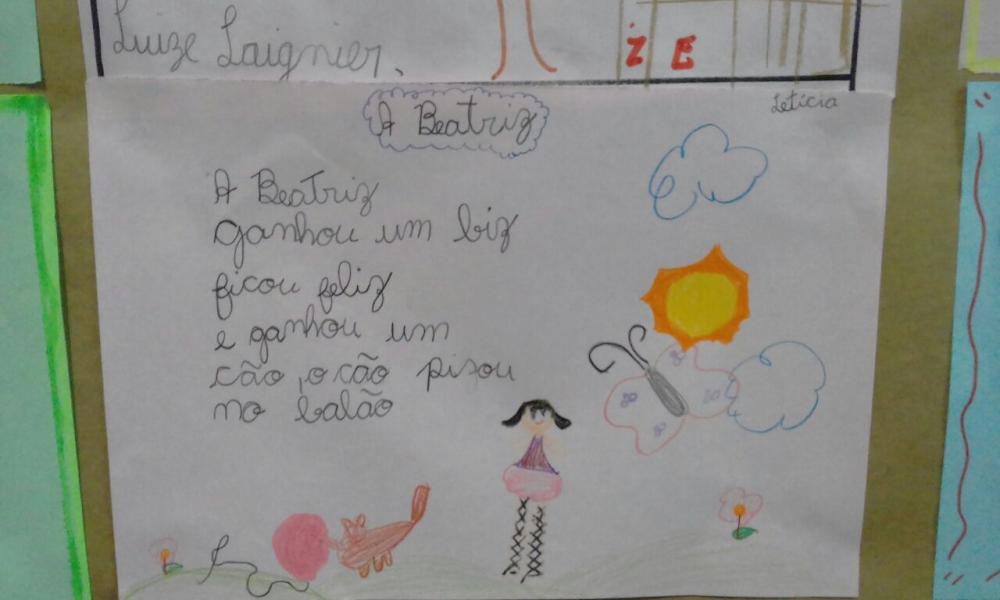 Luize Laignier.
ZE
A Beatriz
Letícia
A Beatriz
ganhou um biz
ficou feliz
e ganhou um
cão, o cão pisou
no balão